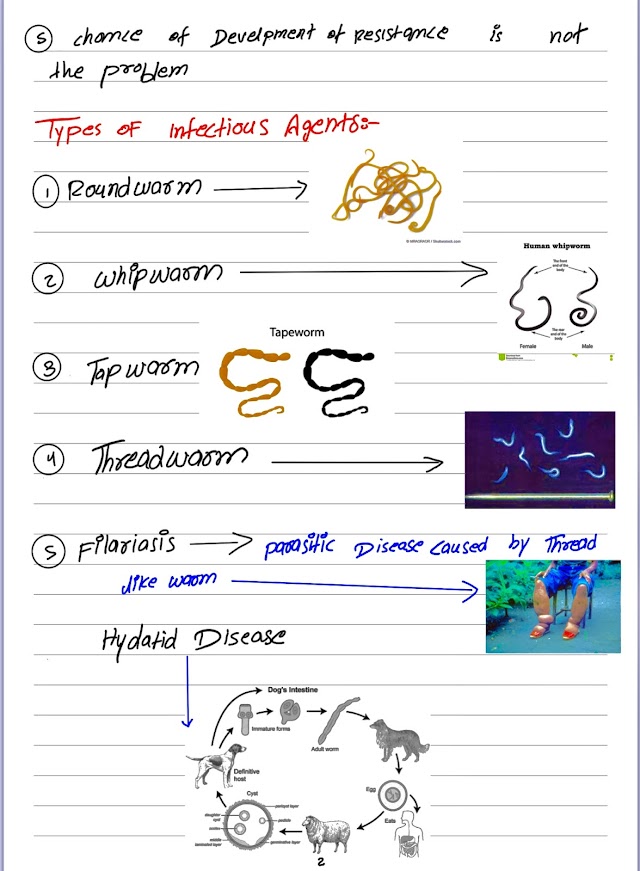 5 chance of Develpment of Resistance is not
the problem
Types of Infectious Agents:-
1 Roundwarm
© MIRAGRAOR / Shutterstock.com
Human whipworm
The front end of the body
2 Whipwarm
The rear end of the body
Female Male
Tapeworm
3 Tapwarm
4 Threadwarm
5 Filariasis → parasitic Disease caused by Thread
like warm
Hydatid Disease
Dog's Intestine
Immature forms
Adult worm
Definitive host
Cyst
Egg
Eats
daughter cyst
germinative layer
2